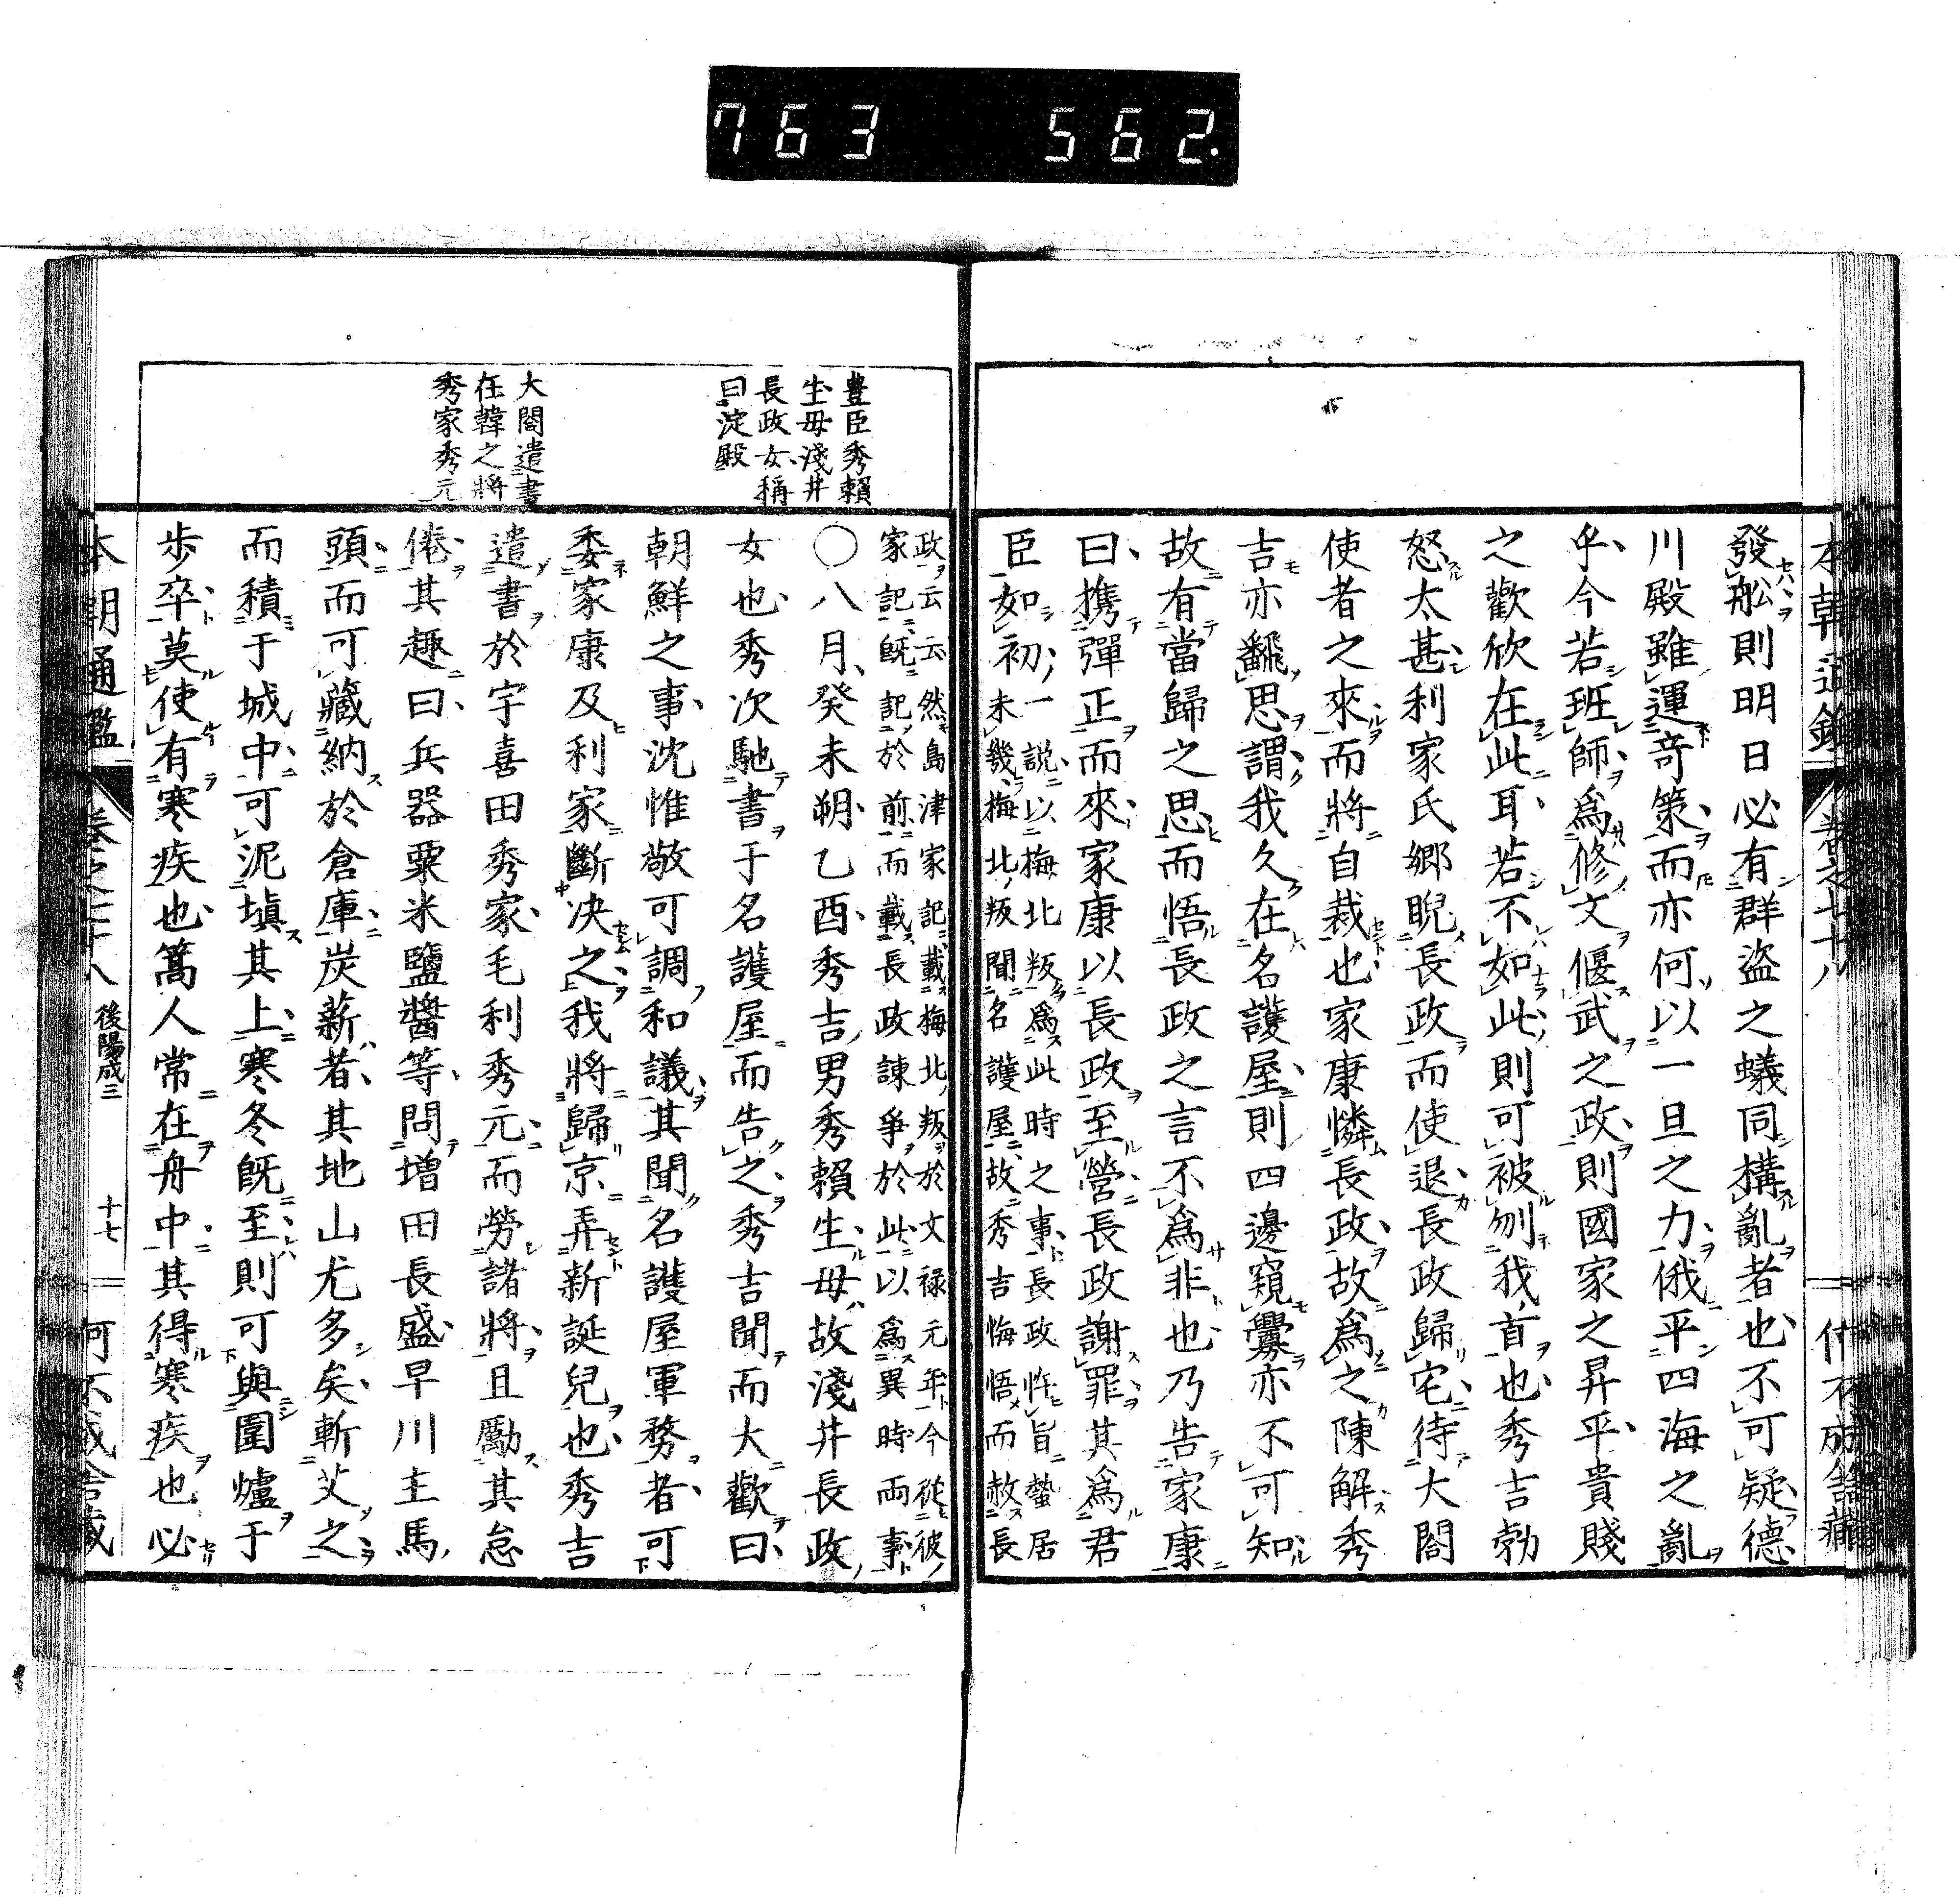 763 562.
本朝通鑑 卷之七十八
發舩則明日必有群盜之蟻同構亂者也不可疑德
川殿雖運竒策而亦何以一旦之力俄平四海之亂
乎今若班師爲修文偃武之政則國家之昇平貴賤
之歡欣在此耳若不如此則可被刎我首也秀吉勃
怒太甚利家氏郷睨長政而使退長政歸宅待大閤
使者之來而將自裁也家康憐長政故爲之陳解秀
吉亦飜思謂我久在名護屋則四邊窺釁亦不可知
故有當歸之思而悟長政之言不爲非也乃告家康
曰携彈正而來家康以長政至營長政謝罪其爲君
臣如初一説以梅北叛爲此時之事長政忤旨蟄居
未幾梅北叛聞名護屋故秀吉悔悟而赦長
政云云然島津家記載梅北叛於文禄元年今從彼
家記既記於前而載長政諫爭於此以爲異時兩事
豊臣秀賴
生母淺井
長政女稱
曰淀殿
〇八月癸未朔乙酉秀吉男秀賴生母故淺井長政
女也秀次馳書于名護屋而告之秀吉聞而大歡曰
朝鮮之事沈惟敬可調和議其聞名護屋軍務者可
委家康及利家斷决之我將歸京弄新誕兒也秀吉
大閤遣書
在韓之將
秀家秀元
遣書於宇喜田秀家毛利秀元而勞諸將且勵其怠
倦其趣曰兵器粟米鹽醬等問增田長盛早川主馬
頭而可藏納於倉庫炭薪者其地山尤多矣斬艾之
而積于城中可泥塡其上寒冬既至則可與圍爐于
歩卒莫使有寒疾也篙人常在舟中其得寒疾也必
本朝通鑑 卷之七十八 後陽成三 十七